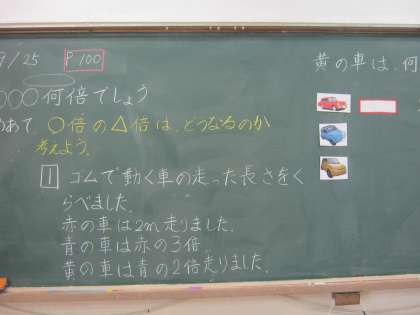 9/25 P100
○○○何倍でしょう
めあて ○倍の△倍は、どうなるのか
考えよう。
1 ゴムで動く車の走った長さをく
らべました。
赤の車は2m走りました。
青の車は赤の3倍、
黄の車は青の2倍走りました。
黄の車は、何